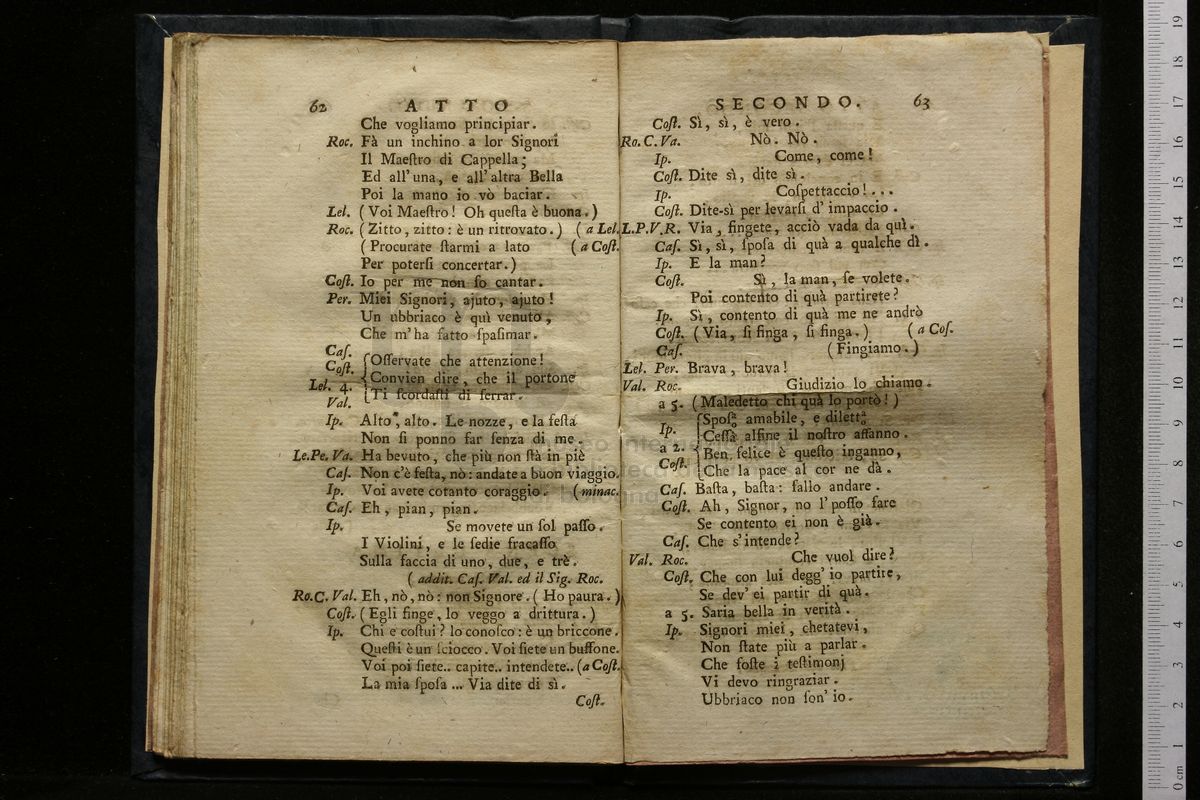 62 ATTO
Che vogliamo principiar.
Roc. Fà un inchino a lor Signori
Il Maeſtro di Cappella;
Ed all'una, e all'altra Bella
Poi la mano io vò baciar.
Lel. (Voi Maeſtro! Oh queſta è buona.)
Roc. (Zitto, zitto: è un ritrovato.) (a Lel.
(Procurate ſtarmi a lato (a Coſt.
Per poterſi concertar.)
Coſt. Io per me non ſo cantar.
Per. Miei Signori, ajuto, ajuto!
Un ubbriaco è quì venuto,
Che m'ha fatto ſpaſimar.
Caſ.
Coſt. Oſſervate che attenzione!
Lel. 4. Convien dire, che il portone
Val. Ti ſcordaſti di ferrar.
Ip. Alto, alto. Le nozze, e la feſta
Non ſi ponno far ſenza di me.
Le.Pe.Va. Ha bevuto, che più non ſtà in piè
Caſ. Non c'è feſta, nò: andate a buon viaggio.
Ip. Voi avete cotanto coraggio. (minac.
Caſ. Eh, pian, pian.
Ip. Se movete un ſol paſſo.
I Violini, e le ſedie fracaſſo
Sulla faccia di uno, due, e trè.
(addit. Caſ. Val. ed il Sig. Roc.
Ro.C.Val. Eh, nò, nò: non Signore. (Ho paura.)
Coſt. (Egli finge, lo veggo a drittura.)
Ip. Chi e coſtui? lo conoſco: è un briccone.
Queſti è un ſciocco. Voi ſiete un buffone.
Voi poi ſiete.. capite.. intendete.. (a Coſt.
La mia ſpoſa ... Via dite di sì.
Coſt.
SECONDO. 63
Coſt. Sì, sì, è vero.
Ro.C.Va. Nò. Nò.
Ip. Come, come!
Coſt. Dite sì, dite sì.
Ip. Coſpettaccio!...
Coſt. Dite-sì per levarſi d'impaccio.
L.P.V.R. Via, fingete, acciò vada da quì.
Caſ. Sì, sì, ſpoſa di quà a qualche dì.
Ip. E la man?
Coſt. Sì, la man, ſe volete.
Poi contento di quà partirete?
Ip. Sì, contento di quà me ne andrò
Coſt. (Via, ſi finga, ſi finga.) (a Coſ.
Caſ. (Fingiamo.)
Lel. Per. Brava, brava!
Val. Roc. Giudizio lo chiamo.
a 5. (Maledetto chi quà lo portò!)
Ip. Spoſ amabile, e dilett
Ceſſà alfine il noſtro affanno.
a 2. Ben felice è queſto inganno,
Coſt. Che la pace al cor ne dà.
Caſ. Baſta, baſta: fallo andare.
Coſt. Ah, Signor, no l'poſſo fare
Se contento ei non è già.
Caſ. Che s'intende?
Val. Roc. Che vuol dire?
Coſt. Che con lui degg'io partire,
Se dev'ei partir di quà.
a 5. Saria bella in verità.
Ip. Signori miei, chetatevi,
Non ſtate più a parlar.
Che foſte i teſtimonj
Vi devo ringraziar.
Ubbriaco non ſon'io.